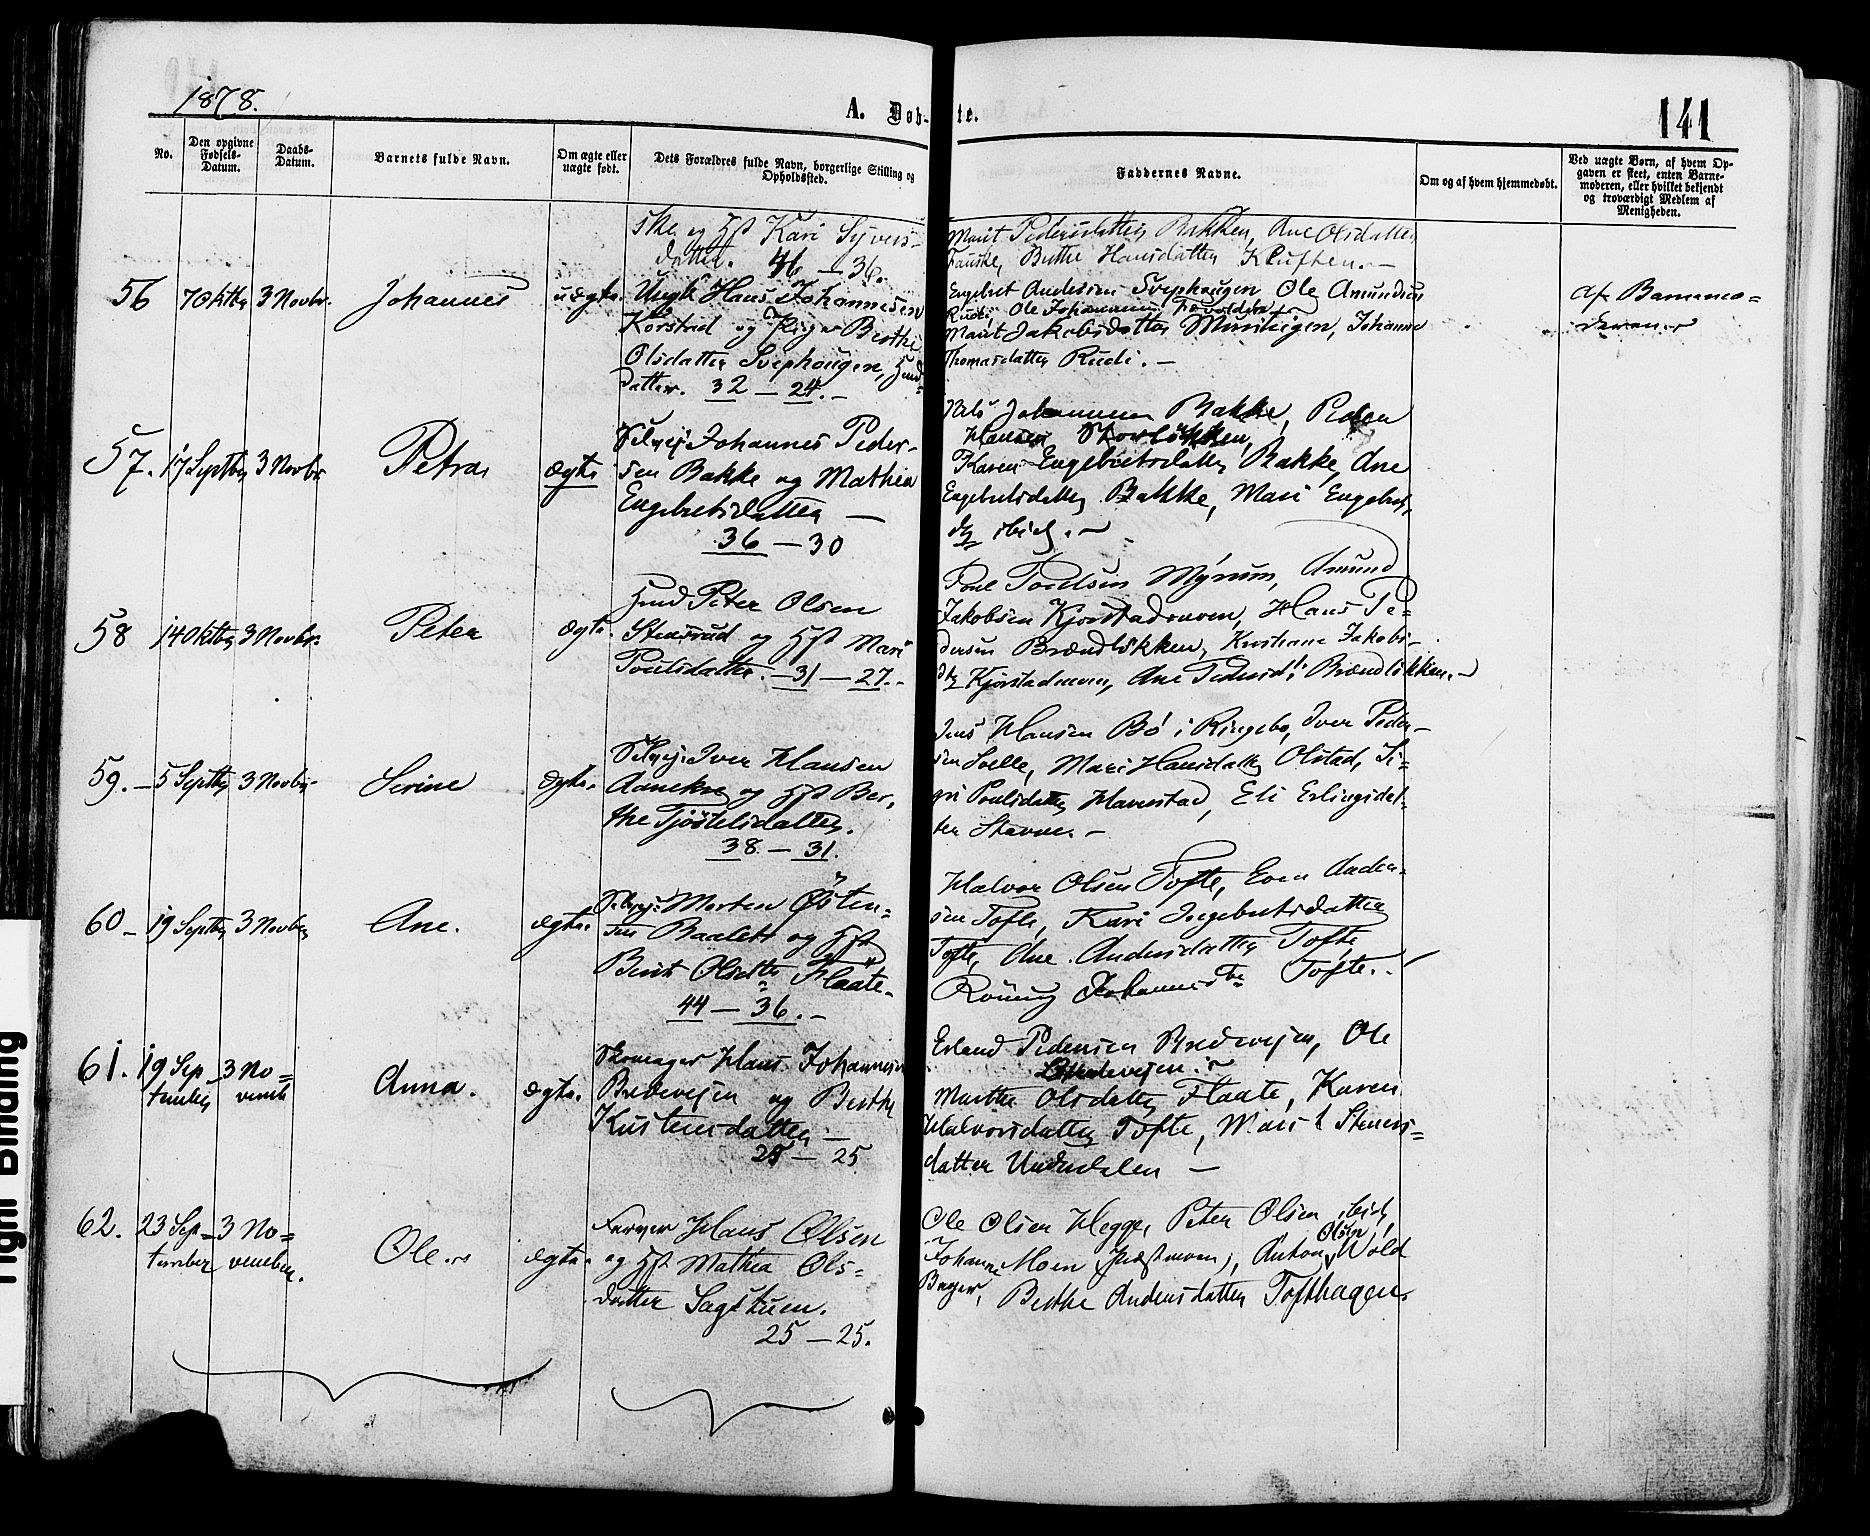 1878.
A. Døb-te.
141
No.
Den opgivne Fødsels-Datum.
Daabs-Datum.
Barnets fulde Navn.
Om ægte eller uægte født.
Dets Forældres fulde Navn, borgerlige Stilling og Opholdssted.
Faddernes Navne.
Om og af hvem hjemmedøbt.
Ved uægte Børn, af hvem Opgaven er skeet, enten Barnemoderen, eller hvilket bekjendt og troværdigt Medlem af Menigheden.
ske og Hst Kari Syvers-
datter. 46 – 36.
Marit Pedersdatter Bakken, Ane Olsdatter
Fauske, Berthe Hansdatter Kluften. –
56 7 Oktbr 3 Novbr. Johannes uægte.
Ungk Hans Johannesen
Korstad og Pige Berthe
Olsdatter Svephougen, Husd
datter. 32 – 24. –
Engebret Andersen Svephaugen Ole Amundsen
Rudi, Ole Johannesen
Marit Jakobsdatter Johanne
Thomasdatter Rudi. –
Af Barnemo=
deren.
57. 17 Septbr 3 Novbr. Petra ægte
Selvej. Johannes Peder-
sen Bakke og Mathea
Engebretsdatter –
36 – 30
Nils Johannesen Bakke, Peder
Hansen Skovløkken,
Karen Engebretsdatter Bakke, Ane
Engebretsdatter Bakke, Mari Engebrets
dtr ibid. –
58 14 Oktbr 3 Novbr. Peter ægte.
Husd Peter Olsen
Stensrud og Hst Mari
Poulsdatter. – 31 – 27. –
Poul Poulsen Myrum, Amund
Jakobsen Kjorstadmoen, Hans Pe=
dersen Brændløkken, Kristiane Jakobs-
dtr Kjorstadmoen, Ane Pedersd: Brændløkken. –
59. – 5 Septbr 3 Novbr. Serine ægte.
Selvej. Iver Hansen
Aanekre og Hst Ber,
the Tjøstelsdatter.
38. – 31.
Jens Hansen Bø i Ringebo, Iver Peder-
sen Solle, Mari Hansdatter Olstad, Si=
gri Poulsdatter Harrestad, Eli Erlingsdat-
ter Stavne. –
60 – 19 Septbr 3 Novber Ane. ægte.
Selvej: Morten Østen=
sen Baalett og Hst
Berit Olsdtter Flaate.
44 – 36. –
Halvor Olsen Tofte, Even Ander-
sen Tofte, Kari Ingebretsdatter
Tofte, Ane Andersdatter Tofte,
Rønnug Johannesdtr Tofte. –
61. 19 Sep- 3 No=
tember vembr Anna. ægte.
Skomager Hans Johannesen
Bredevejen og Berthe
Kristensdatter –
25 – 25
Erland Pedersen Bredevejen, Ole
Bredevejen.
Marthe Olsdatter Flaate, Karen
Halvorsdatter Tofte, Marit Steners=
datter Underdalen –
62. 23 Sep- 3 No=
tember vember. Ole. ægte.
Farver Hans Olsen
og Hst Mathea Ols=
datter Sagstuen.
25 – 25.
Ole Olsen Hegge, Peter Olsen ibid,
Johanne Moen (Præstmoen), Anton Olsen Wold
Bager, Berthe Andersdatter Tofthagen.
Tight Binding